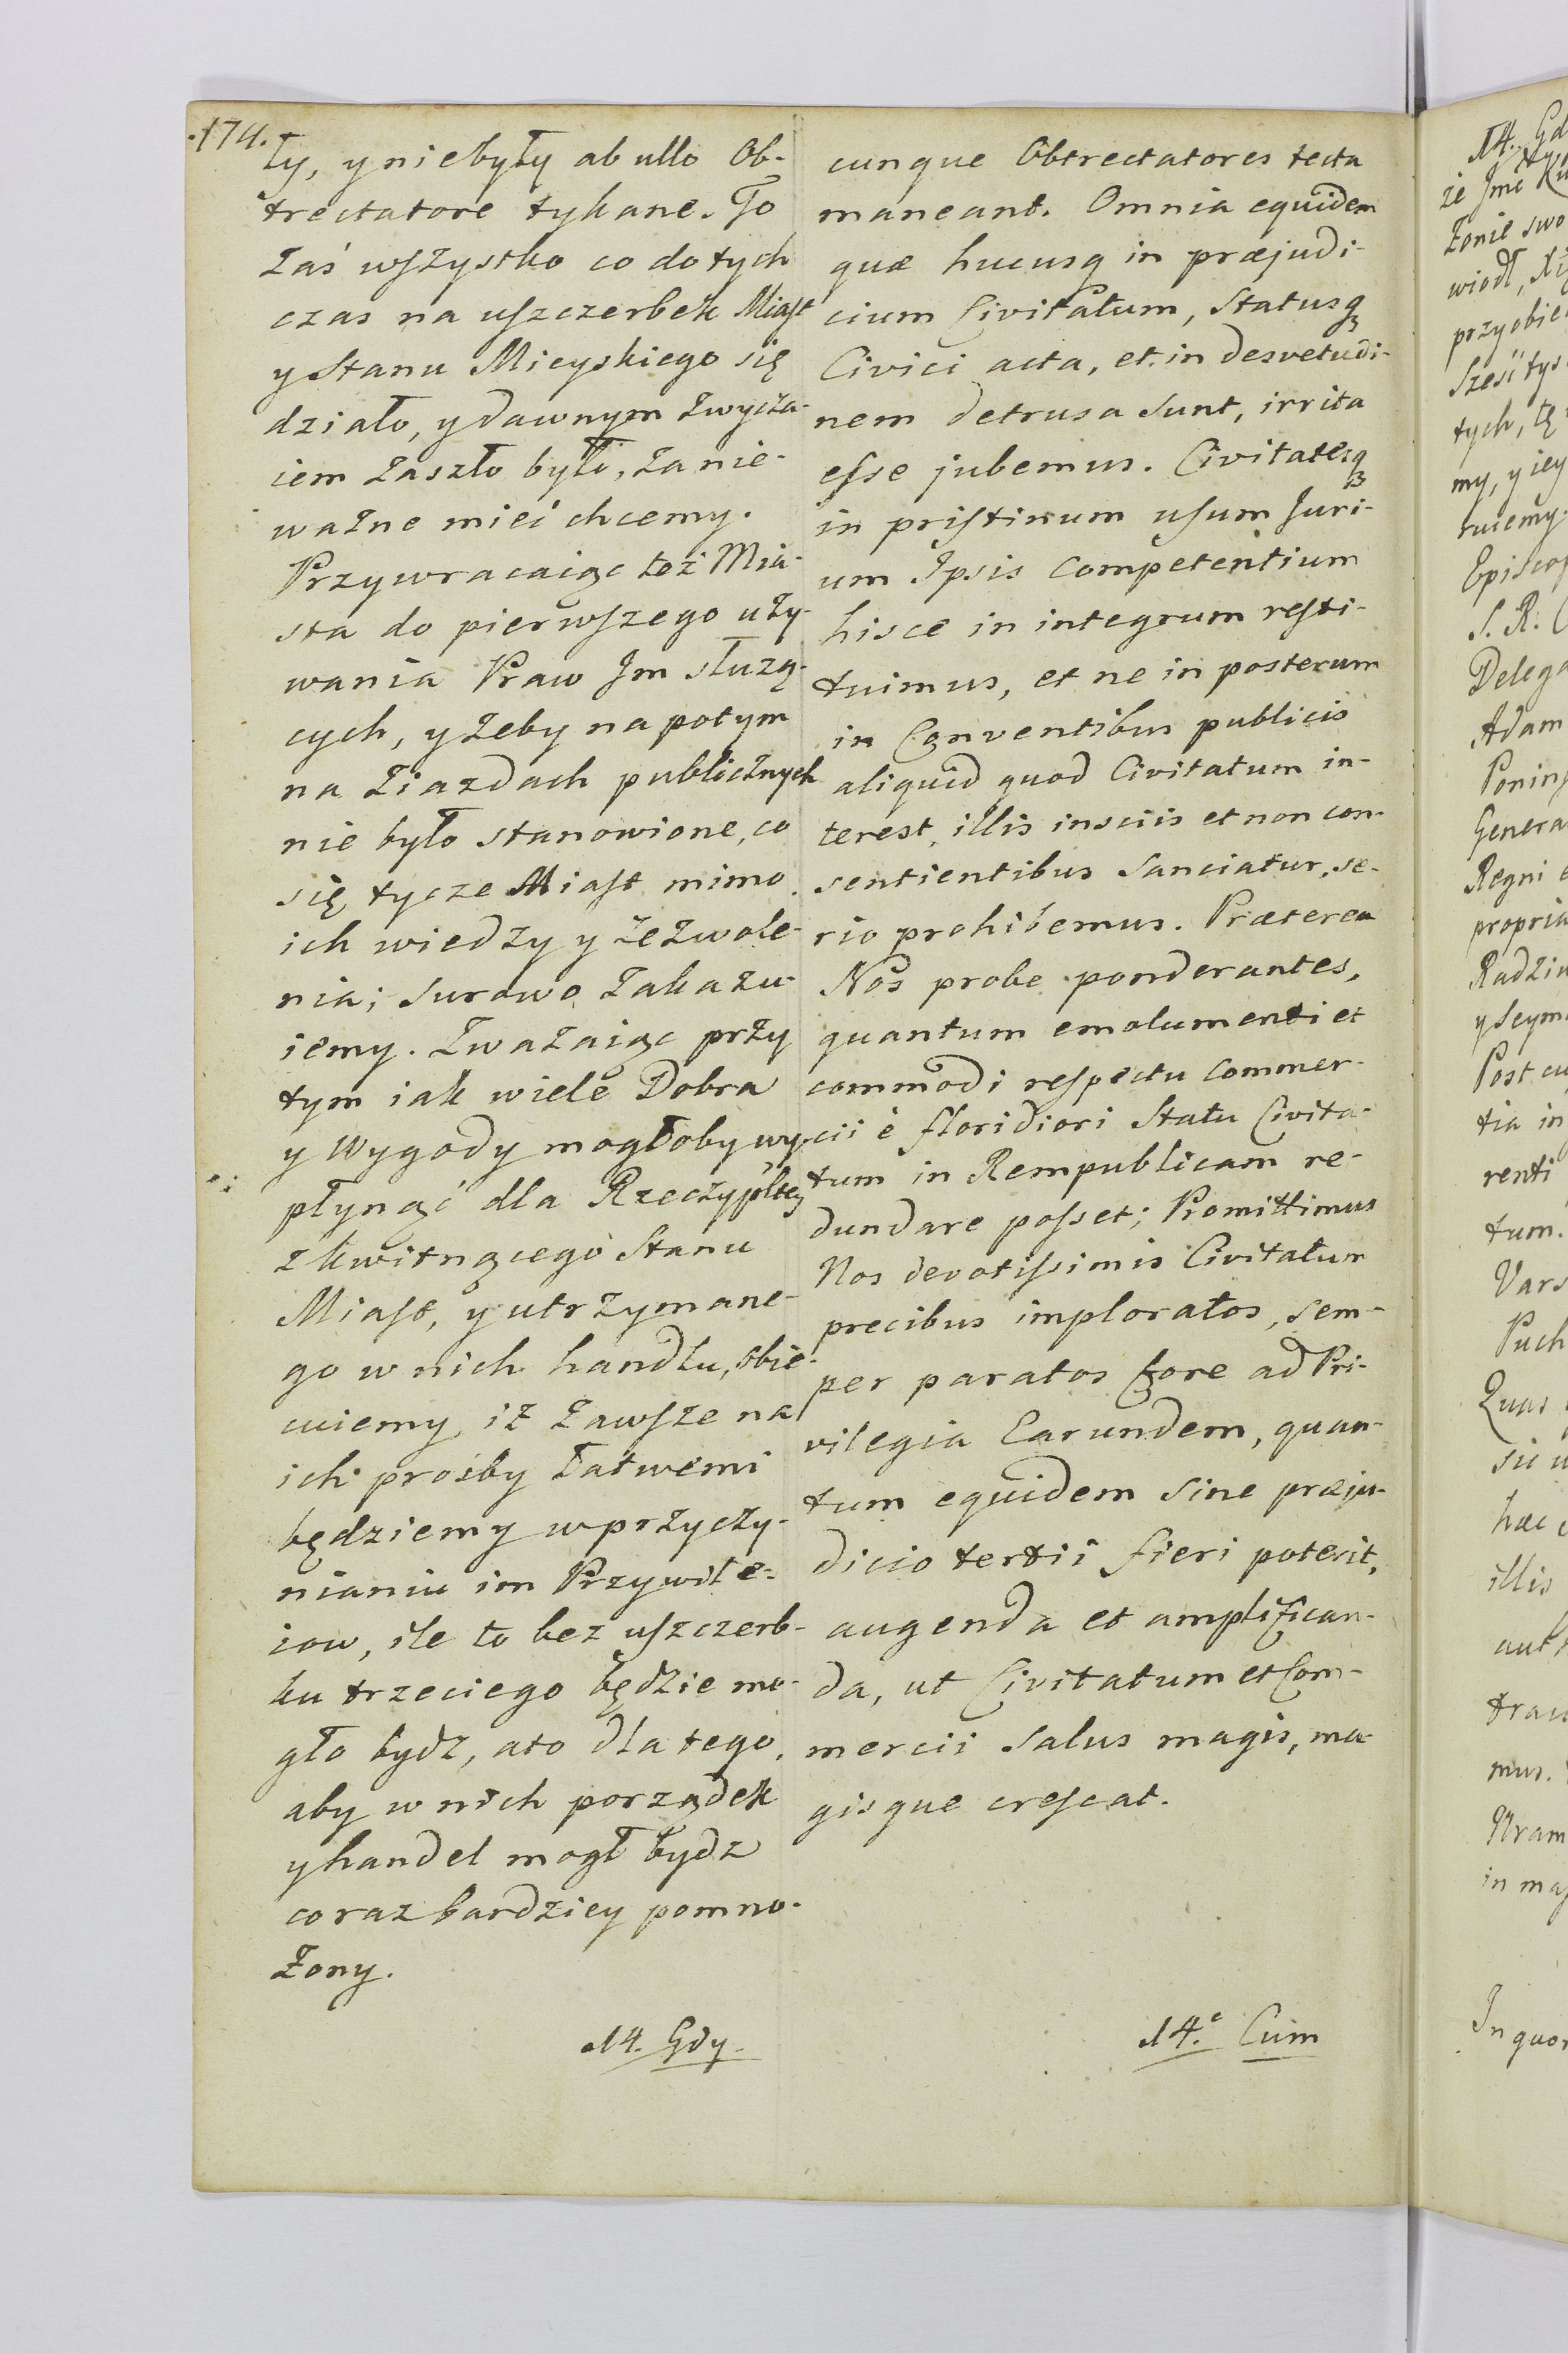 174.
ły, y niebyły ab ullo Ob-
trectatore tykane. To
Zaś wszystko co do tych
czas na uszczerbek Miast
y Stanu Mieyskiego się
działo, y dawnym Zwycza-
iem Zaszło było, Za nie-
ważne mieć chcemy.
Przywracaiąc też Mia-
sta do pierwszego uży-
wania Praw Jm służą-
cych, y żeby na potym
na Ziazdach publicznych
nie było stanowione, co
się tycze Miast mimo
ich wiedzy y zezwole-
nia; surowo Zakazu-
iemy. Zważaiąc przy
tym iak wiele Dobra
y Wygody mogłoby wy-
płynąć dla Rzeczypltey
z kwitnącego Stanu
Miast, y utrzymane-
go w nich handlu, obie-
cuiemy, iż Zawsze na
ich prośby łatwemi
będziemy w przyczy-
nianiu im Przywile-
iow, ile to bez uszczerb-
ku trzeciego będzie mo-
gło bydz, a to dla tego,
aby w nich porządek
y handel mogł bydz
coraz bardziey pomno-
żony.
14. Gdy.
cunque Obtrectatores tecta
maneant. Omnia equidem
quæ hucusq in præjudi-
cium Civitatum, Statusq
Civici acta, et in desvetudi-
nem detrusa sunt, irrita
esse jubemus. Civitatesq
in pristinum usum Juri-
um Ipsis competentium
hisce in integrum resti-
tuimus, et ne in posterum
in Conventibus publicis
aliquid quod Civitatum in-
terest, illis insciis et non con-
sentientibus sanciatur, se-
rio prohibemus. Præterea
Nos probe ponderantes,
quantum emolumenti et
commodi respectu Commer-
cii è floridiori Statu Civita-
tum in Rempublicam re-
dundare posset; Promittimus
Nos devotissimis Civitatum
precibus imploratos, sem-
per paratos fore ad Pri-
vilegia Earundem, quan-
tum equidem sine præju-
dicio tertii fieri poterit,
augenda et amplifican-
da, ut Civitatum et Com-
mercii salus magis, ma-
gisque crescat.
14.º Cum
14. Gd
że Jmć
żonie swo
wiodł,
przyobie
Sześć tys
tych, tę
my, y iey
ruiemy.
Episcop
S. R.
Delega
Adam
Ponins
Genera
Regni
propria
Radziw
y Seym
Post cu
tia in
renti
tum.
Vars
Puch
Quas
sic u
hæc
illis
aut
trac
mus.
Nram
in maj
In quor